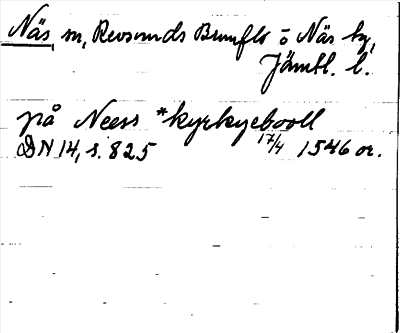 Näs, sn, Revsunds Brunflo o Näs tg,
Jämtl. l.
på Neess *kyrkyebooll
DN 14, s. 825 17/4 1546 or.